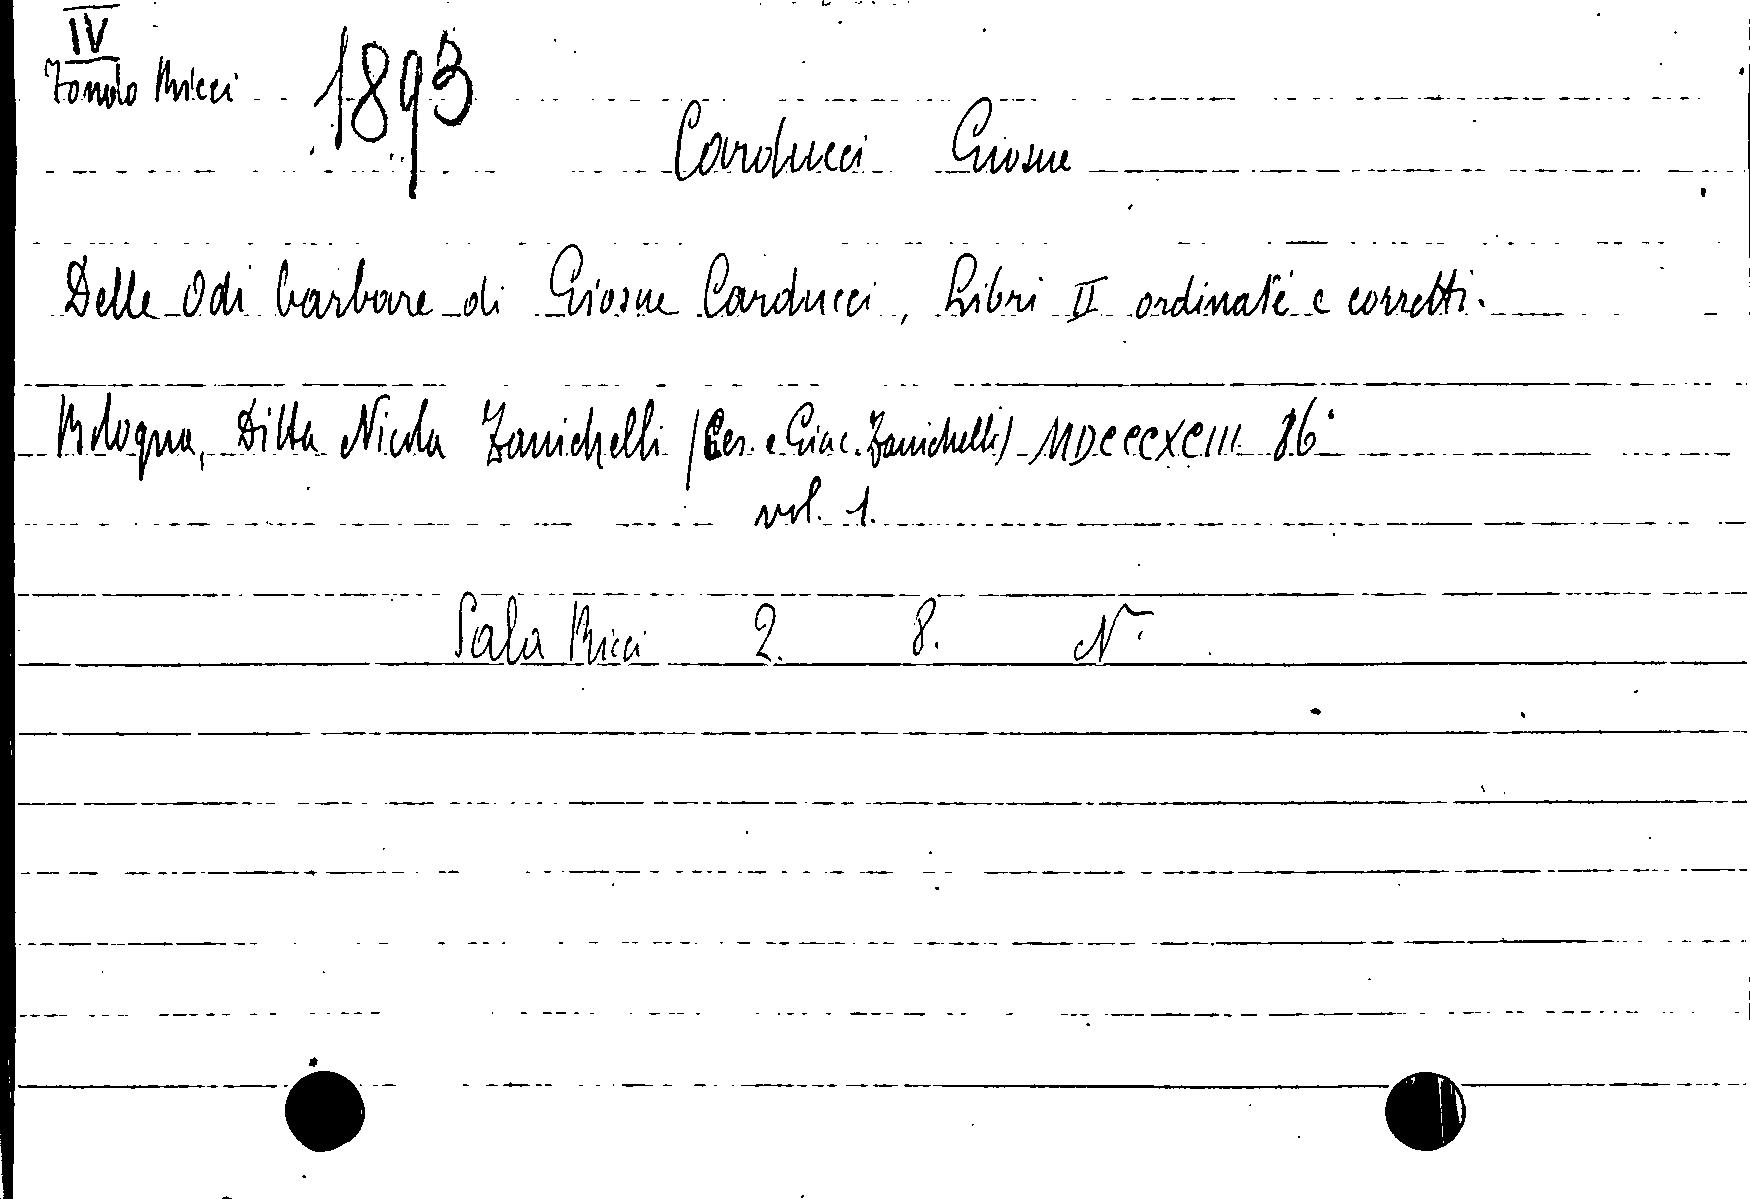 IV
Fondo Ricci 1893
Carducci Giosue
Delle Odi barbare di Giosue Carducci, Libri II ordinati e corretti.
Bologna, Ditta Nicola Zanichelli (Ces. e Giac. Zanichelli) MDCCCXCIII 16°
vol. 1.
Sala Ricci 2. 8. N.